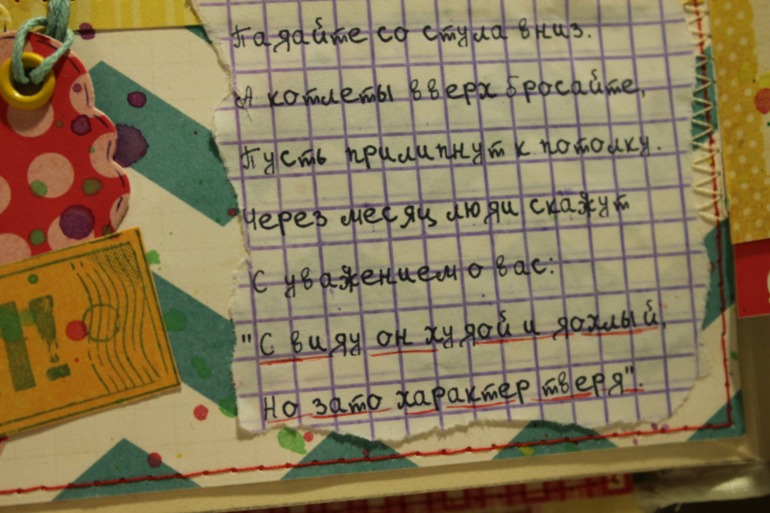 Падайте со стула вниз.
А котлеты вверх бросайте,
Пусть прилипнут к потолку.
Через месяц люди скажут
С уважением о вас:
"С виду он худой и дохлый,
Но зато характер тверд".